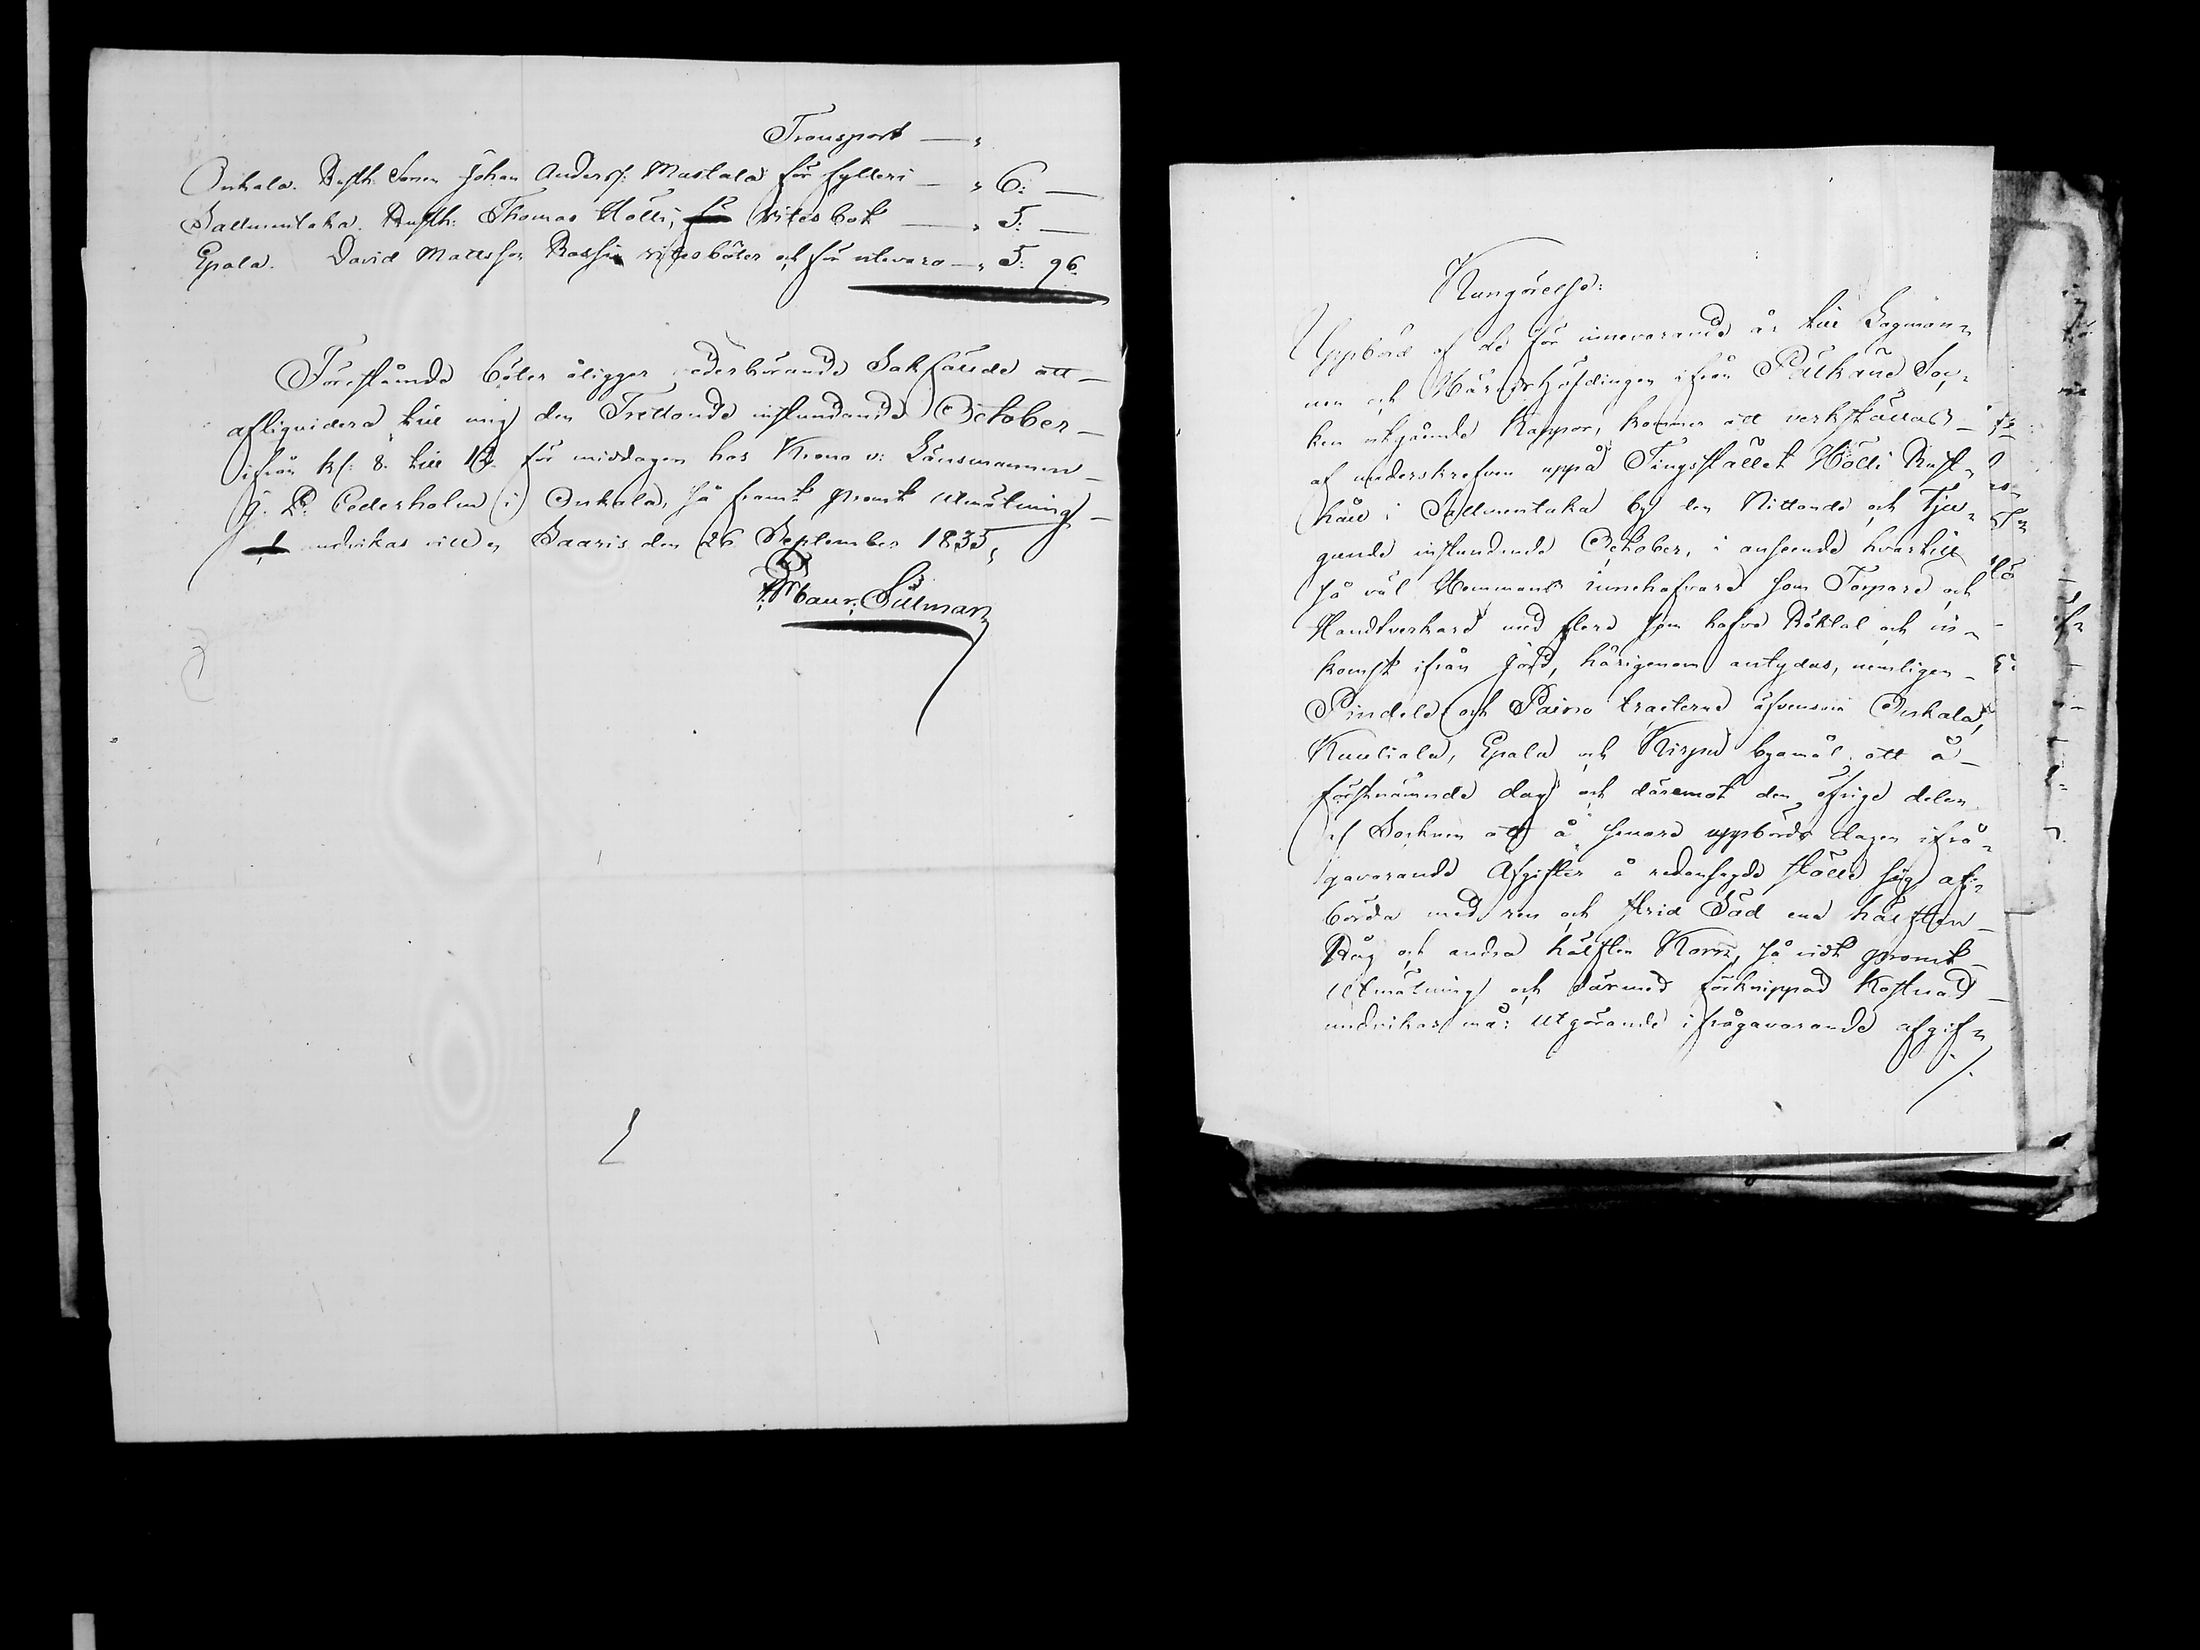 Transport — "
Onkala. Rusth. Sonen Johan Anderss: Mastala för fylleri — " 6: —
Salmentaka. Rusth: Thomas Hölli, vites bot — " 5: —
Epala. David Mattsson vitesböter och för utevaro — " 5: 96.
Förestående böter åligger vederbörande Sakfällde att
afliquidera till mig den Trettonde instundande October
ifrån kl: 8. till 12. för middagen hos Krono v: Länsmannen
Cederholm i Onkala, så framt promt Utmätning
undvikas vill. Saaris den 26 September 1835,
Silman
Kungörelse:
Uppbörd af de för innevarande år till Lagmän-
nen och Häradshöfdingen ifrån Pälkäne Soc-
ken utgående Kappor, kommer att verkställas
af underskrefven uppå Tingsstället Hölli Rust-
håll i Salmentaka by den Nittonde och Tju-
gunde instundande October, i anseende hvartill
så väl Hemmans innehafvare som Torpare och
Handtverkare med flere som hafva Röktal och in-
komst ifrån Jord, härigenom antydas, nemligen
Pindele och Paino tracterne äfvensom Onkala,
Kuuliala, Epala och byamål att å
förstnämnde dag och däremot den öfrige delen
af Socknen att å senare uppbörds dagen ifrå-
gavarande Afgifter å redansagde ställe sig af-
börda med ren och strid Säd ena hälften
Råg och andra hälften Korn, så vidt promt
Utmätning och därmed förknippad Kostnad
undvikas må: Utgörande ifrågavarande afgif-
/.